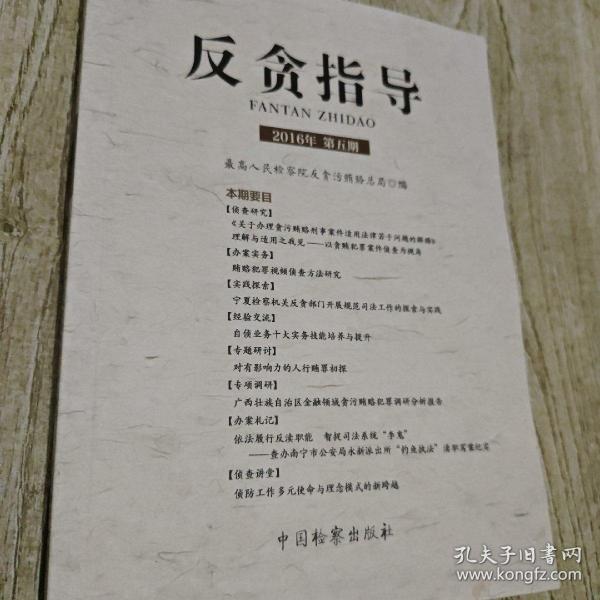 反贪指导
FANTAN ZHIDAO
2016年 第五期
最高人民检察院反贪污贿赂总局◎编
本期要目
【侦查研究】
《关于办理贪污贿赂刑事案件适用法律若干问题的解释》
理解与适用之我见——以贪贿犯罪案件侦查为视角
【办案实务】
贿赂犯罪视频侦查方法研究
【实践探索】
宁夏检察机关反贪部门开展规范司法工作的探索与实践
【经验交流】
自侦业务十大实务技能培养与提升
【专题研讨】
对有影响力的人行贿罪初探
【专项调研】
广西壮族自治区金融领域贪污贿赂犯罪调研分析报告
【办案札记】
依法履行反渎职能 智捉司法系统“李鬼”
——查办南宁市公安局永新派出所“钓鱼执法”渎职窝案纪实
【侦查讲堂】
侦防工作多元使命与理念模式的新跨越
中国检察出版社
孔夫子旧书网
www.kongfz.com